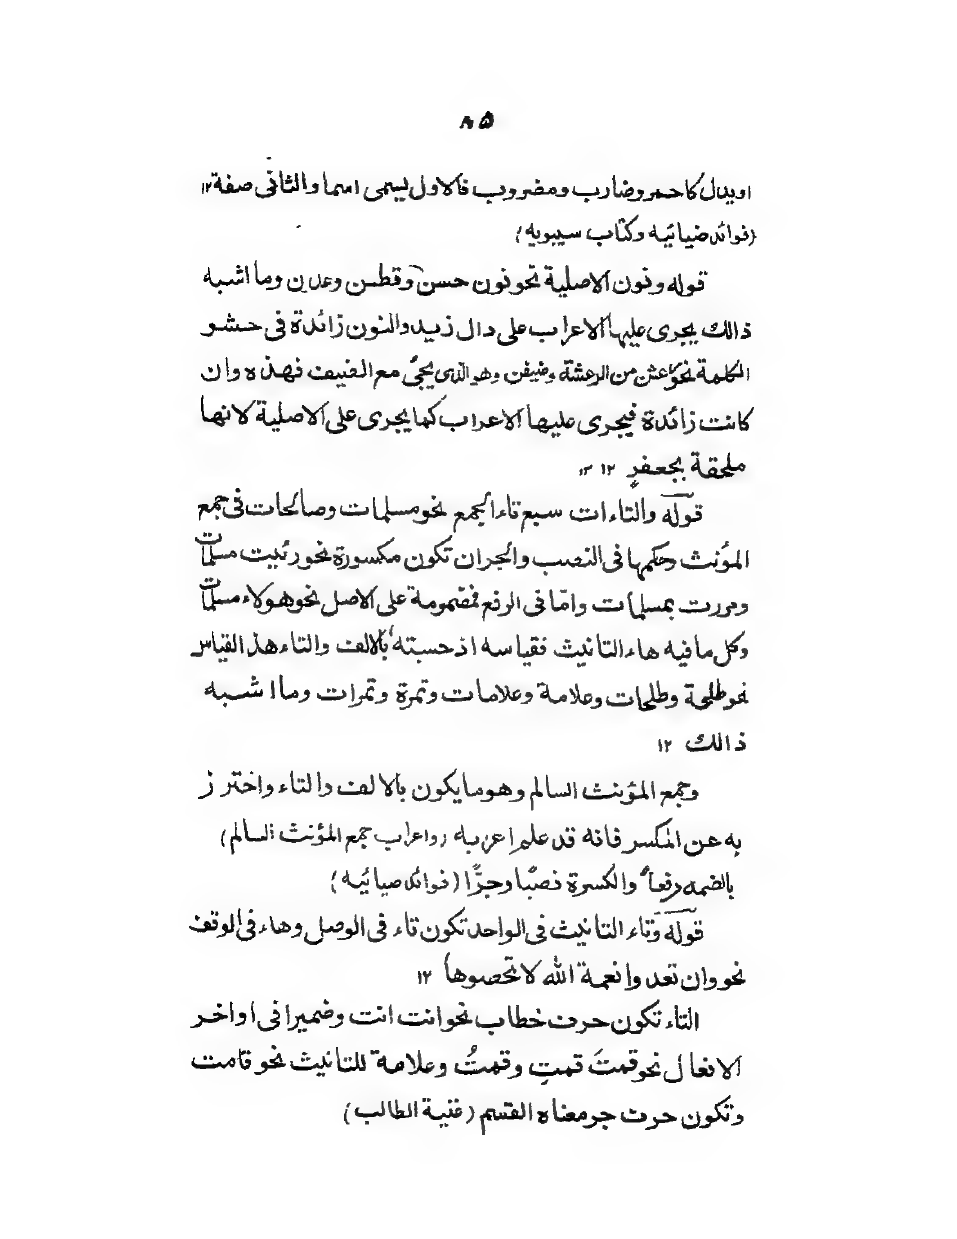 ٨٥
اويدال كاحمر وضارب ومضروب فالاول يسمى اسما والثانى صفة ١٢
(فوائد ضيائيه وكتاب سيبويه)
قوله ونون الاصلية نحو نون حسن وقطن وعدن وما اشبه
ذالك يجرى عليها الاعراب على دال زيد والنون زائدة فى حشو
الكلمة نحو رعشن من الرعشة وضيفن وهو الذى يجئ مع الضيف فهذه وان
كانت زائدة فيجرى عليها الاعراب كما يجرى على الاصلية لانها
ملحقة بجعفر ١٢ ١٢
قوله والتاءات سبع تاء الجمع نحو مسلمات وصالحات فى جمع
المؤنث حكمها فى النصب والجران تكون مكسورة نحو رئيت مسلمات
ومررت بمسلمات وامّا فى الرفع فمضمومة على الاصل نحو هولاء مسلمات
وكل ما فيه هاء التانيث فقياسه اذ حسبته بالالف والتاء هذ القياس
نحو طلحة وطلحات وعلامة وعلامات وتمرة وتمرات وما اشبه
ذالك ١٢
وجمع المؤنث السالم وهو ما يكون بالالف والتاء واحترز
به عن المكسر فانه قد علم اعربه (واعراب جمع المؤنث السالم)
بالضمه رفعاً والكسرة نصبًا وجرًّا (فوائد ضيائيه)
قوله وتاء التأنيث فى الواحد تكون تاء فى الوصل وهاء فى الوقف
نحو وان تعدوا نعمة الله لا تحصوها ١٢
التاء تكون حرف خطاب نحو انت انت وضميرا فى اواخر
الافعال نحو قمتَ قمتِ وقمتُ وعلامة للتانيث نحو قامت
وتكون حرف جر معناه القسم (غنية الطالب)